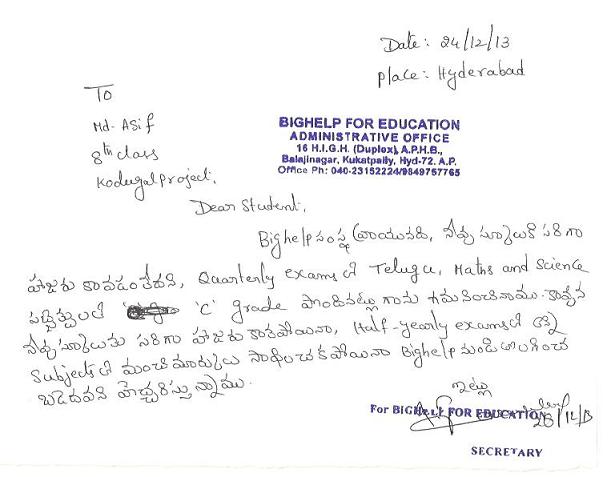 Date: 24/12/13
place: Hyderabad
To
Md. Asif
8th class
Kodugal project.
BIGHELP FOR EDUCATION
ADMINISTRATIVE OFFICE
16 H.I.G.H. (Duplex), A.P.H.B.,
Balajinagar, Kukatpally, Hyd-72. A.P.
Office Ph: 040-23152224/9849757765
Dear Student,
Bighelp సంస్థ వ్రాయునది, నీవు స్కూలుకి సరిగా
హాజరు కావడంలేదని, Quarterly exams లో Telugu, Maths and Science
సబ్జెక్టులలో 'C' grade పొందినట్లుగాను గమనించినాము. కావున
నీవు స్కూలుకు సరిగా హాజరు కాకపోయినా, Half-yearly exams లో అన్ని
Subjects లో మంచి మార్కులు సాధించకపోయినా Bighelp నుండి తొలగించ
బడెదవని హెచ్చరిస్తున్నాము.
ఇట్లు
For BIGHELP FOR EDUCATION
26/12/13
SECRETARY